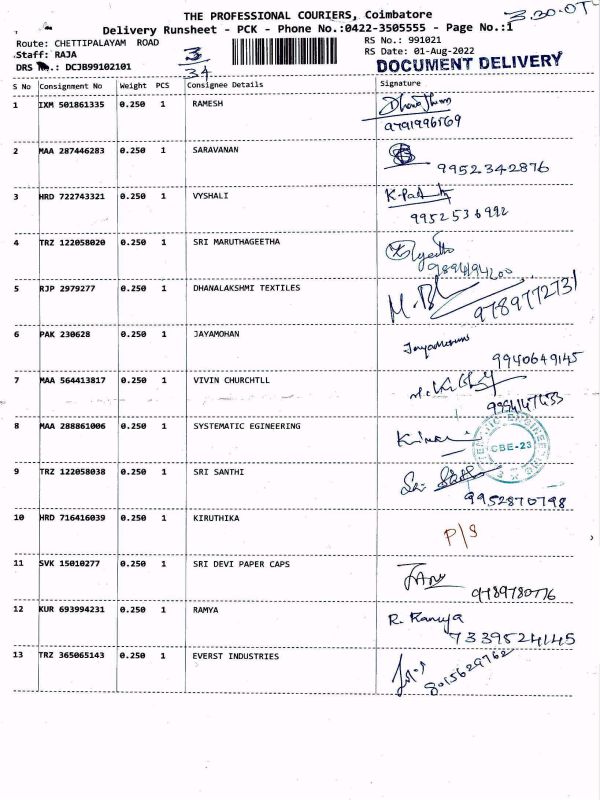 THE PROFESSIONAL COURIERS, Coimbatore
3.30.OT
Delivery Runsheet - PCK - Phone No.:0422-3505555 - Page No.:1
Route: CHETTIPALAYAM ROAD
RS No.: 991021
Staff: RAJA
3/34
RS Date: 01-Aug-2022
DRS No.: DCJB99102101
DOCUMENT DELIVERY
S No Consignment No Weight PCS Consignee Details Signature
1 IXM 501861335 0.250 1 RAMESH
9791996569
2 MAA 287446283 0.250 1 SARAVANAN
9952342876
3 HRD 722743321 0.250 1 VYSHALI
9952536992
4 TRZ 122058020 0.250 1 SRI MARUTHAGEETHA
5 RJP 2979277 0.250 1 DHANALAKSHMI TEXTILES
9789772731
6 PAK 230628 0.250 1 JAYAMOHAN
9940649145
7 MAA 564413817 0.250 1 VIVIN CHURCHTLL
8 MAA 288861006 0.250 1 SYSTEMATIC EGINEERING
CBE-23
9 TRZ 122058038 0.250 1 SRI SANTHI
9952870798
10 HRD 716416039 0.250 1 KIRUTHIKA
P/S
11 SVK 15010277 0.250 1 SRI DEVI PAPER CAPS
9789780776
12 KUR 693994231 0.250 1 RAMYA R. Ramya
7339524145
13 TRZ 365065143 0.250 1 EVERST INDUSTRIES
8015629762